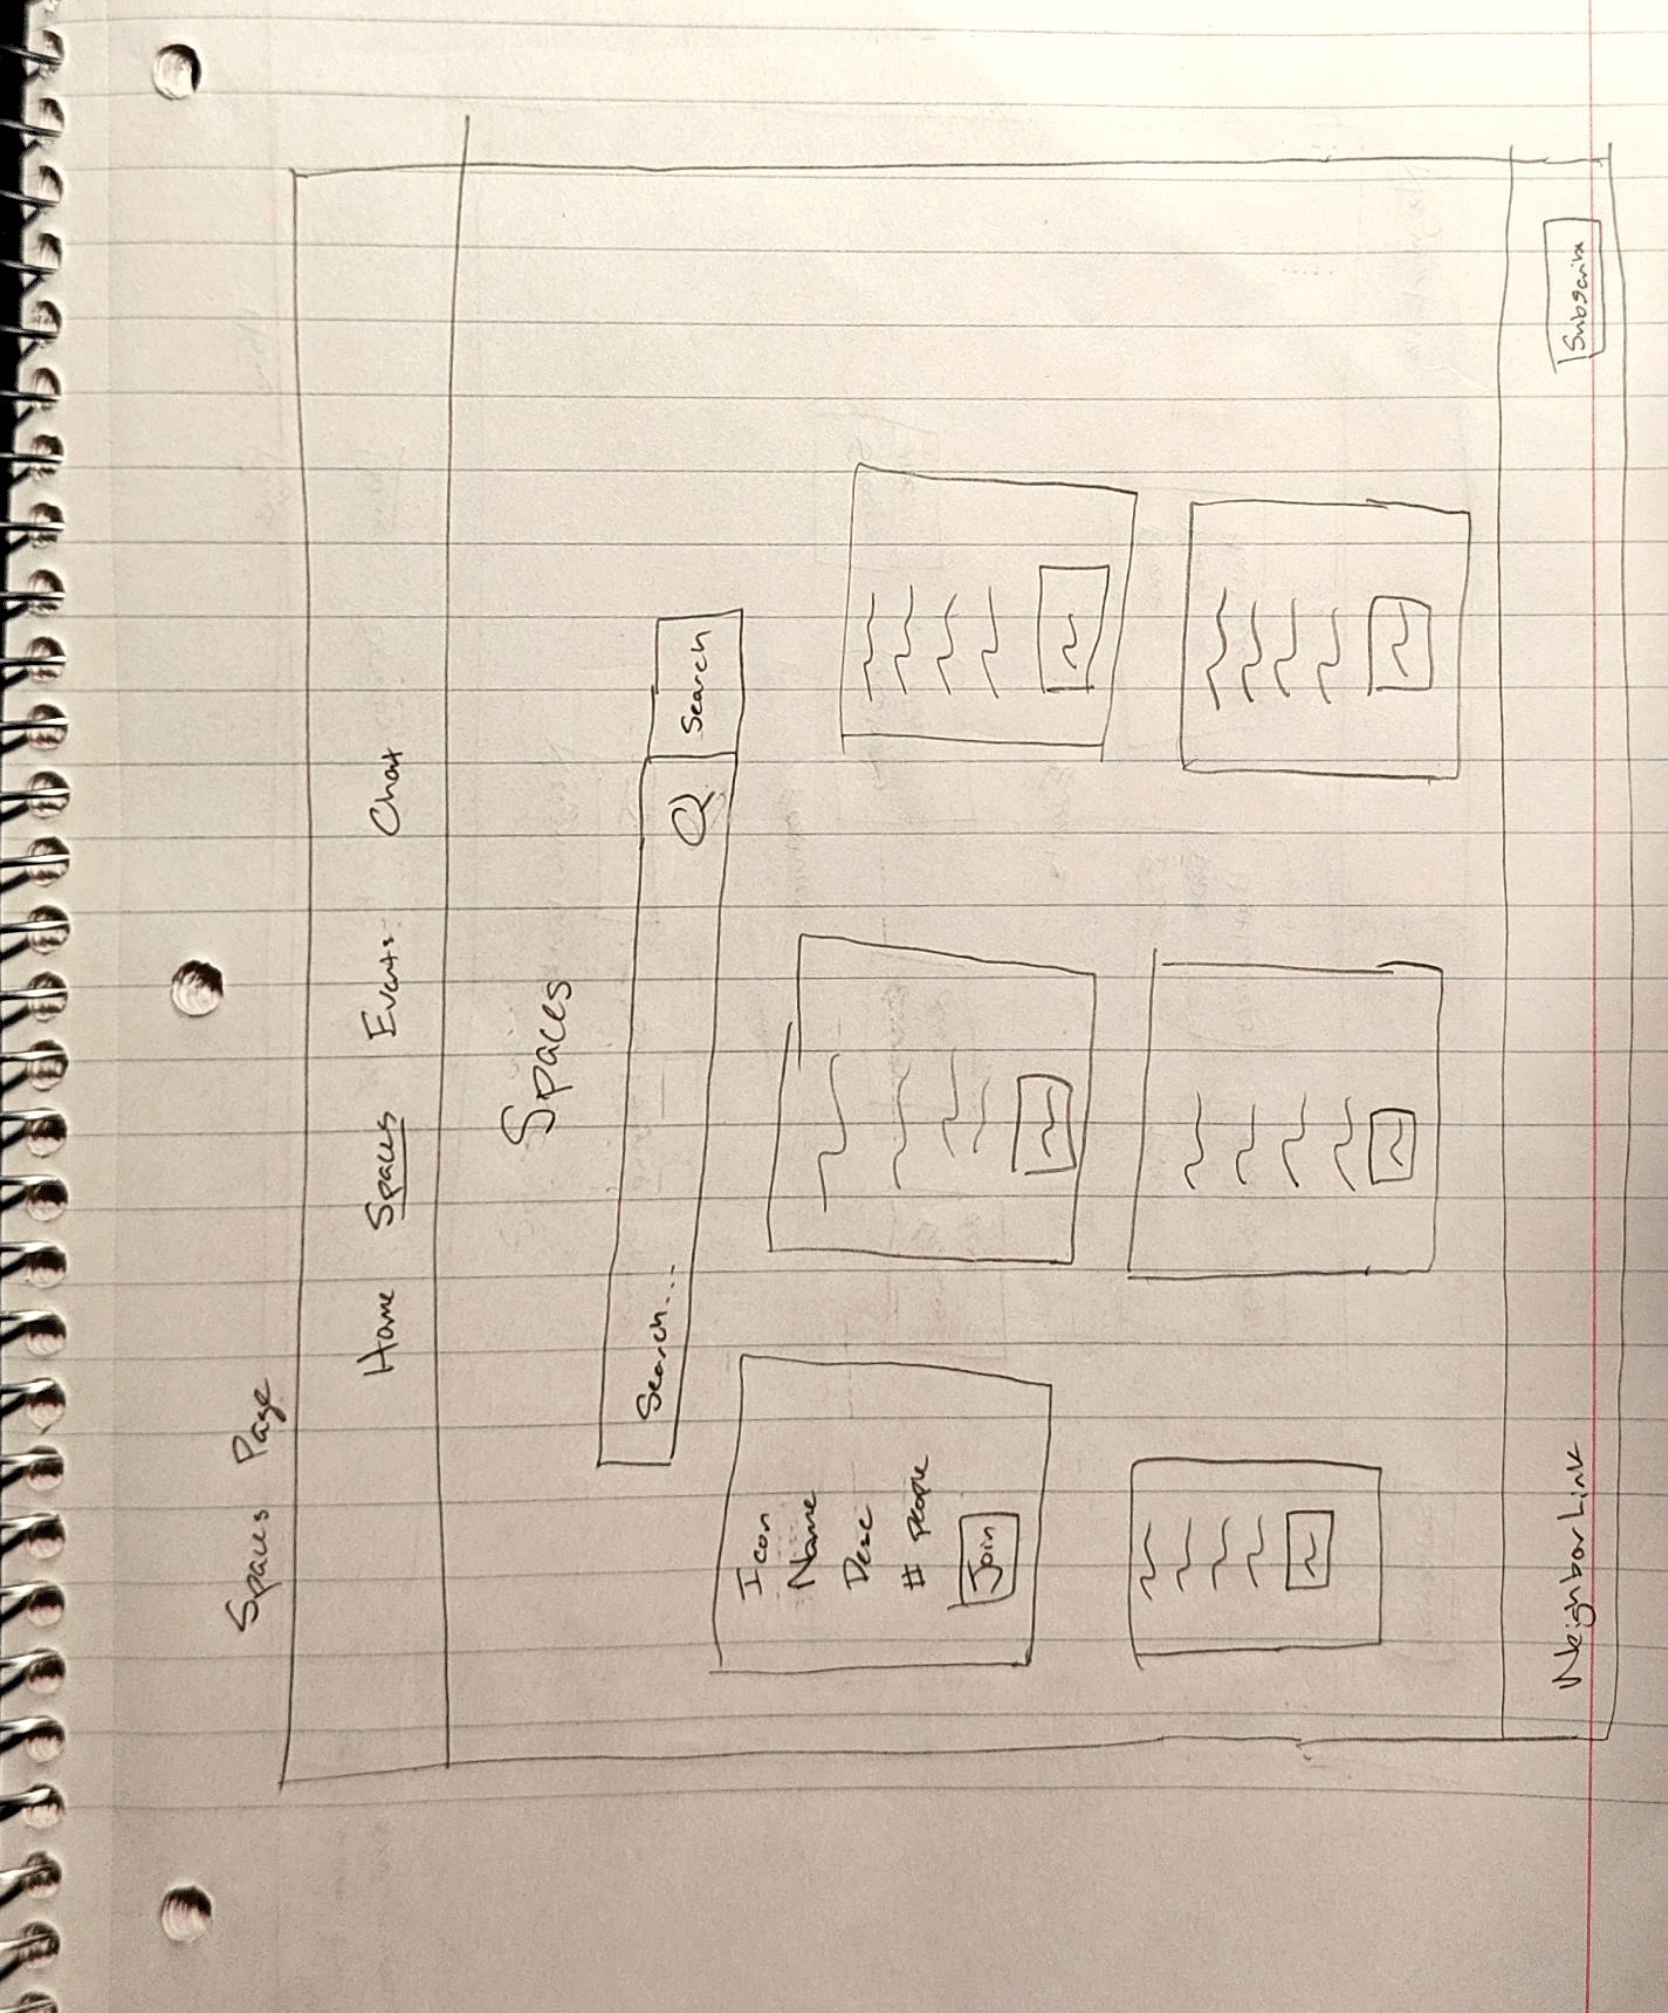 Spaces Page
Home Spaces Events Chat
Spaces
Search... Search
Icon
Name
Desc
# people
Join
NeighborLink Subscribe